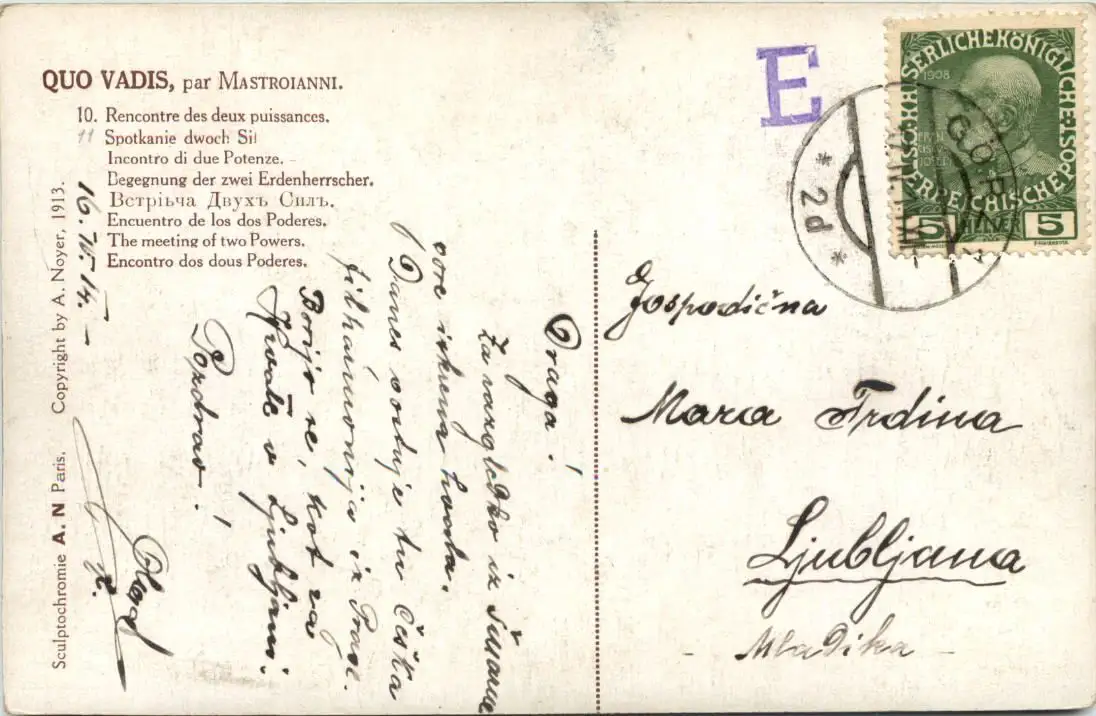 QUO VADIS, par MASTROIANNI.
10. Rencontre des deux puissances.
11 Spotkanie dwoch Sił
Incontro di due Potenze.
Begegnung der zwei Erdenherrscher.
Встрѣча Двухъ Силъ.
Encuentro de los dos Poderes.
The meeting of two Powers.
Encontro dos dous Poderes.
Sculptochromie A. N Paris. Copyright by A. Noyer, 1913.
16. IV. 14. –
Draga!
Za razgledko iz
vore iskrena hvala.
Danes svetuje tu Češka
filharmonija iz Prage.
Borijo se, kot za
v Ljubljani.
Pozdrav!
E
SERLICHEKÖNIGLICHE
POST
ÖSTERREICHISCHE
1908
5 HELLER 5
GÖRZ
* 2d *
Gospodična
Mara Trdina
Ljubljana
- Mladika -